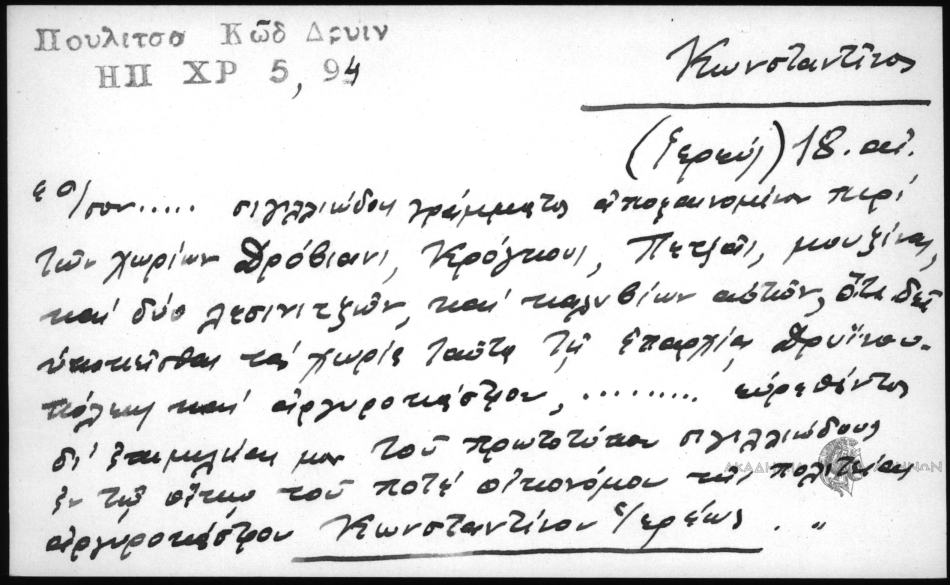 Πουλιτσα Κῶδ Δρυιν
ΗΠ ΧΡ 5, 94
Κωνσταντῖνος
(ἱερεύς) 18. αἰ.
σιγιλλιώδους γράμματος ἀποφαινομένου περί
τῶν χωρίων Δρόβιανι, Κρόγκους, Πετζᾶς, μουζίνας,
καί δύο λεσινιτζῶν, καί καλυβίων αὐτῶν, ὅτι δεῖ
ὑποκεῖσθαι τά χωρία ταῦτα τῇ ἐπαρχίᾳ Δρυϊνου-
πόλεως καί ἀργυροκάστρου, ......... εὑρεθέντος
δι' ἐπιμελείας μου τοῦ πρωτοτύπου σιγιλλιώδους
ἐν τῷ οἴκῳ τοῦ ποτέ οἰκονόμου τῆς πολιτείας
ἀργυροκάστρου Κωνσταντίνου ἱερέως . "